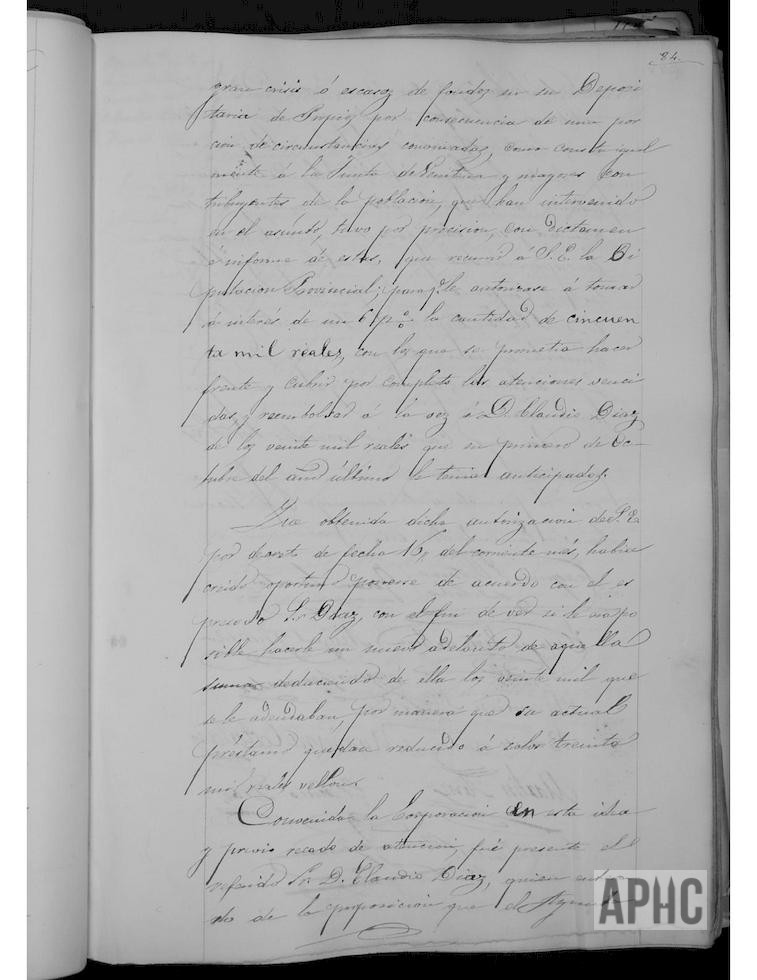 84.
grave crisis ó escasez de fondos en su Deposi
taria de Propios por consecuencia de una por
cion de circunstancias conocidas, como consta igual
mente á la Junta de y mayores con
tribuyentes de la poblacion, que han intervenido
en el asunto, tuvo por precision, con dictamen
é informe de estos, que recurrir á S. E. la Di
putacion Provincial, para q.e le autorizase á tomar
á interés de un 6 p% la cantidad de cincuen
ta mil reales, con los que se prometia hacer
frente y cubrir por completo las atenciones venci
das, y reembolsar á la vez á D. Claudio Diaz
de los veinte mil reales que en primero de Oc-
tubre del año último le tenia anticipados.
Que obtenida dicha autorizacion de S. E.
por decreto de fecha 16, del corriente més, habia
creido oportuno ponerse de acuerdo con el es
presado Sr Diaz, con el fin de ver si le era po
sible hacerle un nuevo adelanto de aquella
suma deduciendo de ella los veinte mil que
se le adeudaban, por manera que su actual
préstamo quedaba reducido á solos treinta
mil reales vellon.
Convenida la Corporacion en esta idea
y previo recado de atencion, fué presente el
referido Sr. D. Claudio Diaz, quien entera
do de la proposicion que el Ayunta
APHC